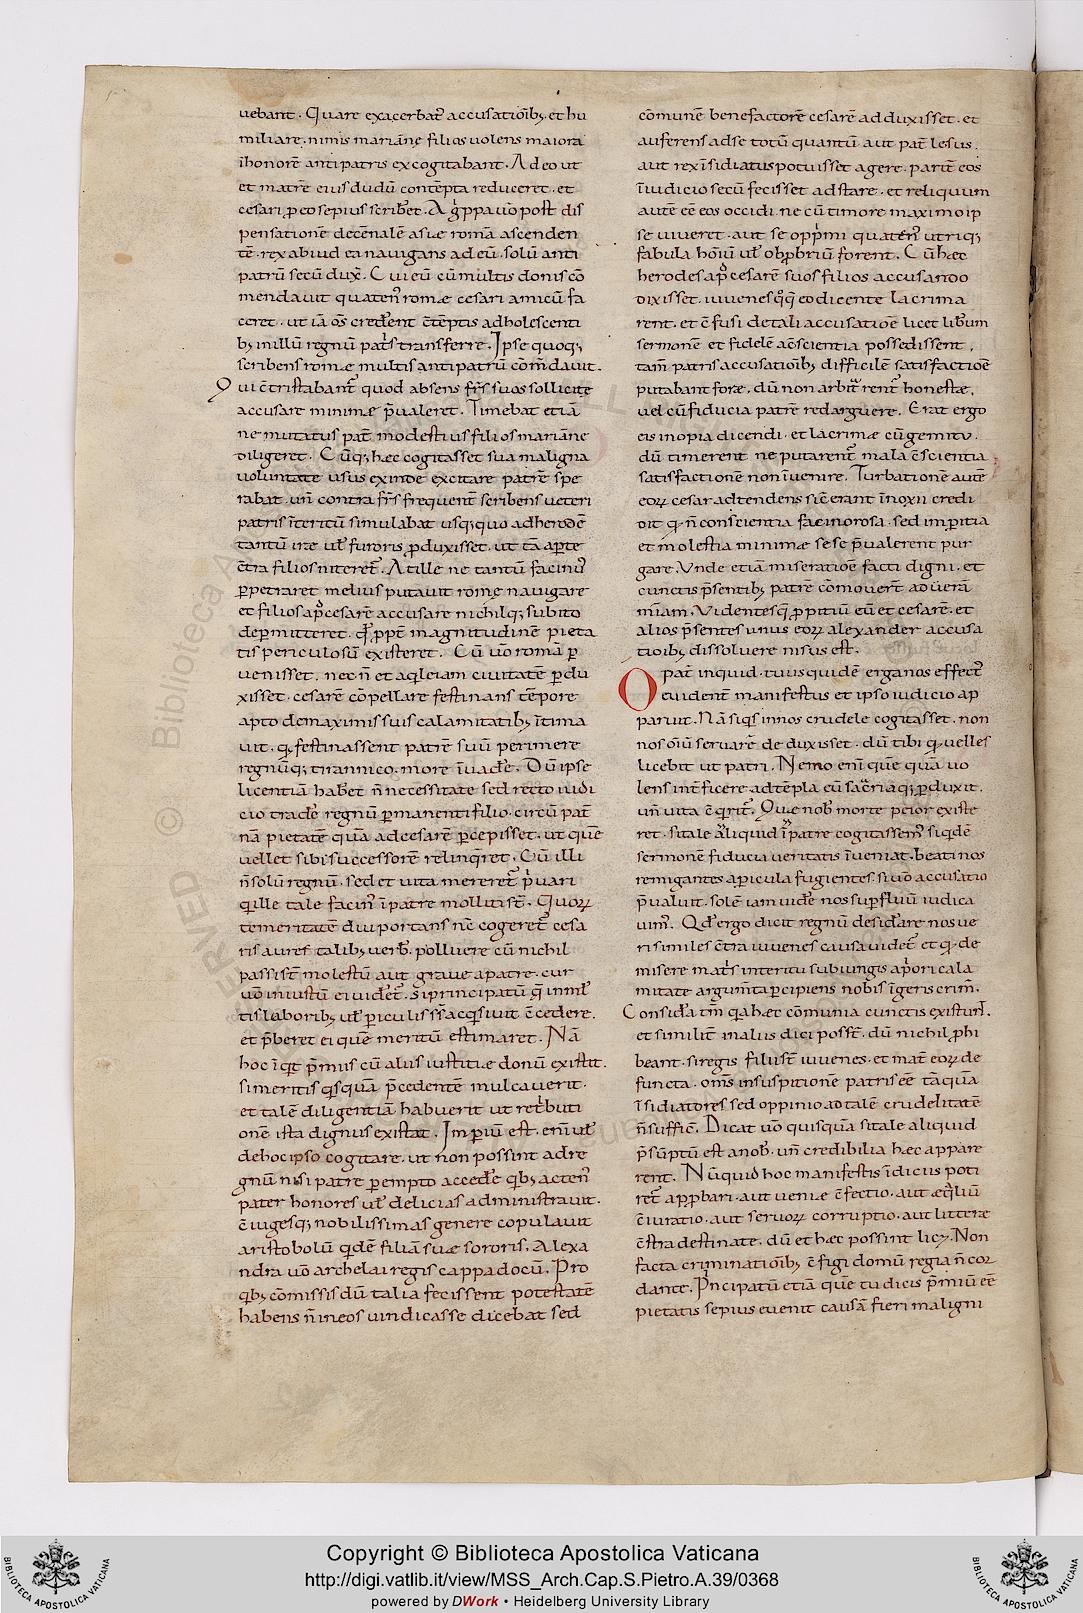 uebant. Quare exacerbat᷒ accusatiōib; et hu
miliare. nimis mariāne filios uolens maiora
īhonorē antipatris excogitabant. Adeo ut
et matrē eius dudū contēpta reduceret. et
cesari ꝓ eo sepius scriber̄et. Agͥppa ūo post dis
pensationē decēnalē asiæ romā ascenden
tē. rex abiud ea nauigans ad eū. solū anti
patrū secū dux̄. Cui eū cū multis donis cō
mendauit quaten᷒ romæ cesari amicū fa
ceret. ut iā os̄ crederent c̄tēptis adholescenti
b; in illū regnū pat͛s transferre. Ipse quoq;
scribens romæ multis antipatrū cōm̄dauit.
Qui c̄tristabant᷒ quod absens fr̄s suos sollicite
accusare minimæ p̄ualeret. Timebat etiā
ne mutatus pat͛ modestius filios mariāne
diligeret. Cūq; hæc cogitasset sua maligna
uoluntate usus exinde excitare patrē spe
rabat. un̄ contra fr̄s frequent͛ scribens ueteri
patris īteritū simulabat usq;quo ad herodē
tantū iræ ul̄ furoris ꝓduxisset. ut tā aꝑte
c̄tra filios niteret᷒. At ille ne tantū facin᷒
ꝑpetraret melius putauit romæ nauigare
et filios apͩ cesarē accusare nichilq; subito
deꝑmitteret. qd̄ ꝓpt͛ magnitudinē pieta
tis periculosū existeret. Cū ūo romā ꝑ
uenisset. nec n̄ et aqͥleiam ciuitatē ꝑdu
xisset. cesarē cōpellare festinans tēpore
apto de maximis suis calamitatib; ītima
uit. qͥ festinassent patrē suū perimere
regnūq; tirannico more īuadere. Dū ipse
licentiā haberet n̄ necessitate sed recto iudi
cio tradere regnū ꝑmanenti filio. circū pat͛
nā pietatē quā ad cesarē ꝑcepisset. ut quē
uellet sibi successorē relinqͥret. Cū illi
n̄ solū regnū. sed et uita mereret᷒ pͥuari
qͥ ille tale facin᷒ ī patre molliti st̄. Quoꝝ
temeritatē diu portans nc̄ cogeret᷒ cesa
ris aures talib; uerb̄. polluere cū nichil
passi st̄ molestū aut graue a patre. cur
ūo iniustū ei uideret᷒. si principatū qͤ in ml̄
tis laborib; ul̄ ꝑiculis ss̄ acqͥsiuit c̄cedere.
et p̄beret ei quē meritū estimaret. Nā
hoc īqͥt p̄mus cū aliis iustitiæ donū existit.
si meritis qͥsquā p̄cedentē mulcauerit.
et talē diligentiā habuerit ut retͥbuti
onē ista dignus existat. Imperiū est. enī ul̄
de hoc ipso cogitare. ut non possint adre
gnū nisi patre perempto accedere qͥb; acten᷒
pater honores ul̄ delicias administrauit.
c̄iugesq; nobilissimas genere copulauit
aristobolū qͥdē filiā suæ sororis. Alexa
ndrū ūo archelai regis cappadocū. Pro
qͥb; cōmissis dū talia fecissent potestatē
habens n̄ in eos uindicasse dicebat sed
cōmunē benefactorē cesarē adduxisset. et
auferens ad se totū quantū. aut pat͛ lesus.
aut rex īsidiatus potuisset agere. parit͛ eos
ī iudicio secū fecisset adstare. et reliquum
autē eē eos occidi. ne cū timore maximo ip
se uiueret. aut se oppͥmi quaten᷒ utriq;
fabula hōīū ul̄ obprobriū forent. Cū hæc
herodes apͩ cesarē suos filios accusando
dixisset. iuuenes qͦq; eo dicente lacrima
rent. et c̄fusi de tali accusatiōe licet liberum
sermonē et fidelē ac̄scientia possedissent.
tam̄ patris accusatiōib; difficilē satisfactioē
putabant foræ. dū non arbitrarent᷒ honestæ.
uel cū fiducia patrē redarguere. Erat ergo
eis inopia dicendi. et lacrimæ cū gemitu.
dū timerent ne putarent᷒ mala c̄scientia
satisfactionē non īuenire. Turbationē autē
eoꝝ cesar adtendens sic̄ erant īnoxii credi
dit qͥ n̄ conscientia facinorosa. sed imperitia
et molestia minimæ sese p̄ualerent pur
gare. Vnde etiā miseratioē facti digni. et
cunctis p̄sentib; patrē cōmouert̄ ad uerā
mīam. Videntesq; ꝓpitiū eū et cesarē. et
alios p̄sentes unus eoꝝ alexander accusa
tioīb; dissoluere nisus est.
O pat͛ inquid. tuus quidē erga nos effect᷒
euident͛ manifestus et ipso iudicio ap
paruit. Nā si qͥs in nos crudele cogitasset. non
nos oīū seruatorē deduxisset. dū tibi qͥ uelles
licebit ut patri. Nemo enī quē quā uo
lens int͛ficere ad tēpla cū sacͣria q; ꝑduxit.
un̄ uita c̄qͥrit᷒. Quæ nob̄ morte peior existe
ret. si tale aliquid ī patre cogitassem᷒ siqͥdē
sermonē fiducia ueritatis īueniat. beati nos
remigantes. aꝑicula fugientes. si ūo accusatio
p̄ualuit. solē iam uidere nos suꝑfluū iudica
uim᷒. Qd̄ ergo dicit regnū desiderare nos ue
risimiles c̄tra iuuenes causa uideret᷒ et qͥ de
misere mat͛s interitu subiungis apͥori cala
mitate argum̄ta ꝑcipiens nobis īgeris crim̄.
Considera tm̄ qͥa hæc cōmunia cunctis existunt.
et similit͛ malus dici posset. dū nichil ꝓhi
beant. si regis filii st̄ iuuenes. et mat͛ eoꝝ de
functa. oms̄ in suspitionē patris eē tāquā
īsidiatores sed oppinio ad talē crudelitatē
n̄ suffic̄. Dicat ūo quisquā si tale aliquid
p̄sūptū est a nob̄. un̄ credibilia hæc appare
rent. Nūquid hoc manifestis īdiciis poti
ret᷒ apꝓbari. aut ueniæ c̄fectio. aut æqͣliū
c̄iuratio. aut seruoꝝ corruptio. aut litteræ
c̄stra destinate. dū et hæc possint licꝫ. Non
facta criminatiōib; c̄figi domū regia n̄ c̄cor
dante. Pͥncipatū etiā quē tu dicis p̄miū eē
pietatis sepius euenit causā fieri maligni
Copyright © Biblioteca Apostolica Vaticana
http://digi.vatlib.it/view/MSS_Arch.Cap.S.Pietro.A.39/0368
powered by DWork • Heidelberg University Library
BIBLIOTECA APOSTOLICA VATICANA
BIBLIOTECA APOSTOLICA VATICANA